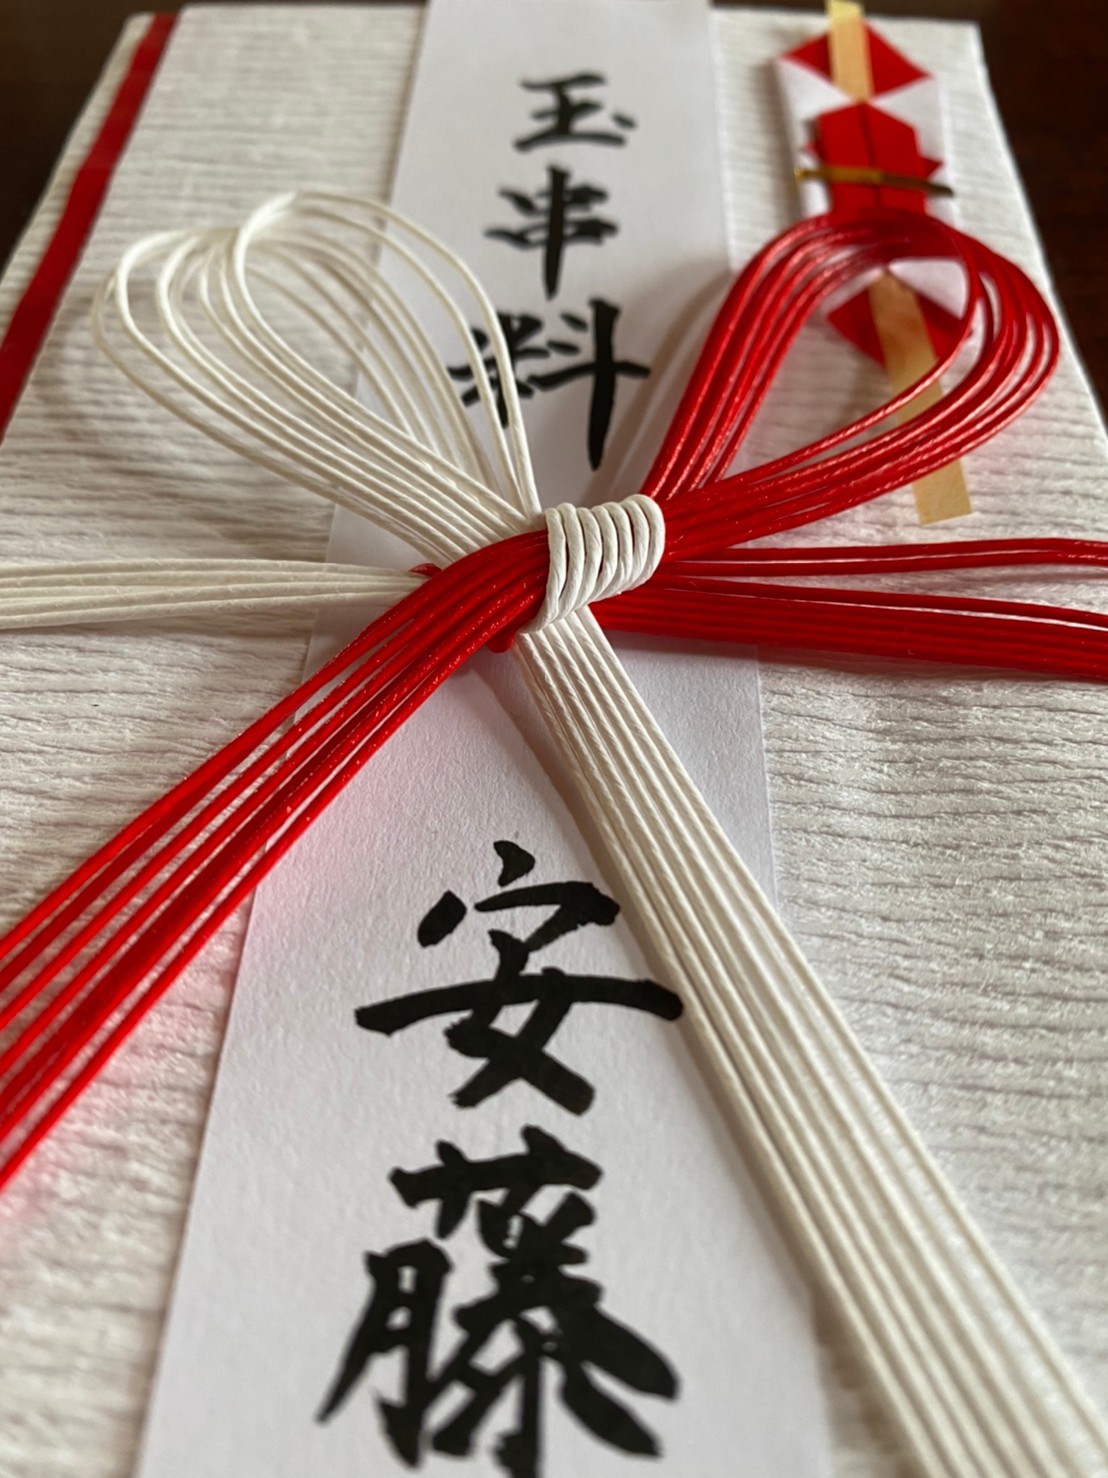 玉串料
安藤